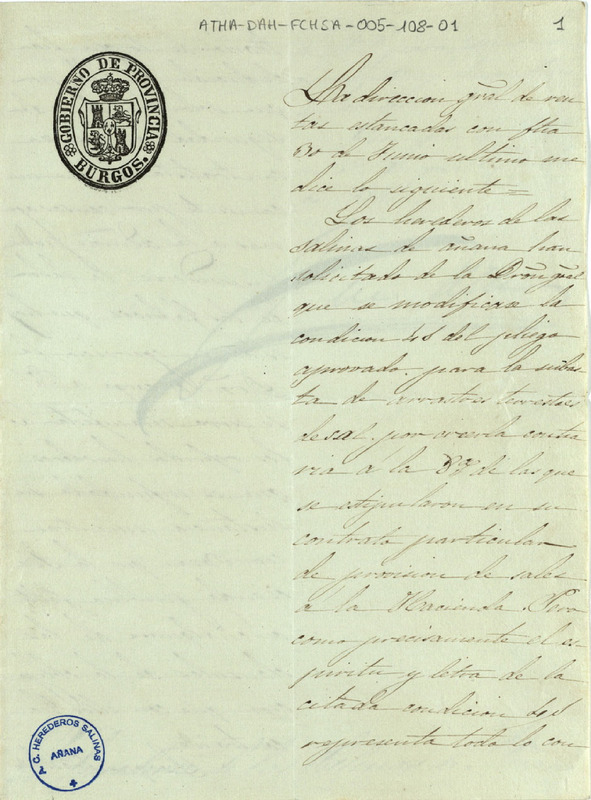 ATHA-DAH-FCHSA-005-108-01
1
GOBIERNO DE PROVINCIA
BURGOS.
La direccion gral de ren
tas estancadas con fha
30 de Junio ultimo me
dice lo siguiente=
Los herederos de las
Salinas de añana han
solicitado de la Dron gral
que se modificase la
condicion 48 del pliego
aprovado para la subas
ta de arrastres terrestres
de sal por creerla contra
ria á la de las que
se estipularon en su
contrato particular
de provision de sales
a la Hacienda. Pero
como precisamente el es
piritu y letra de la
citada condicion 48
representa todo lo con
A. C. HEREDEROS SALINAS
AÑANA